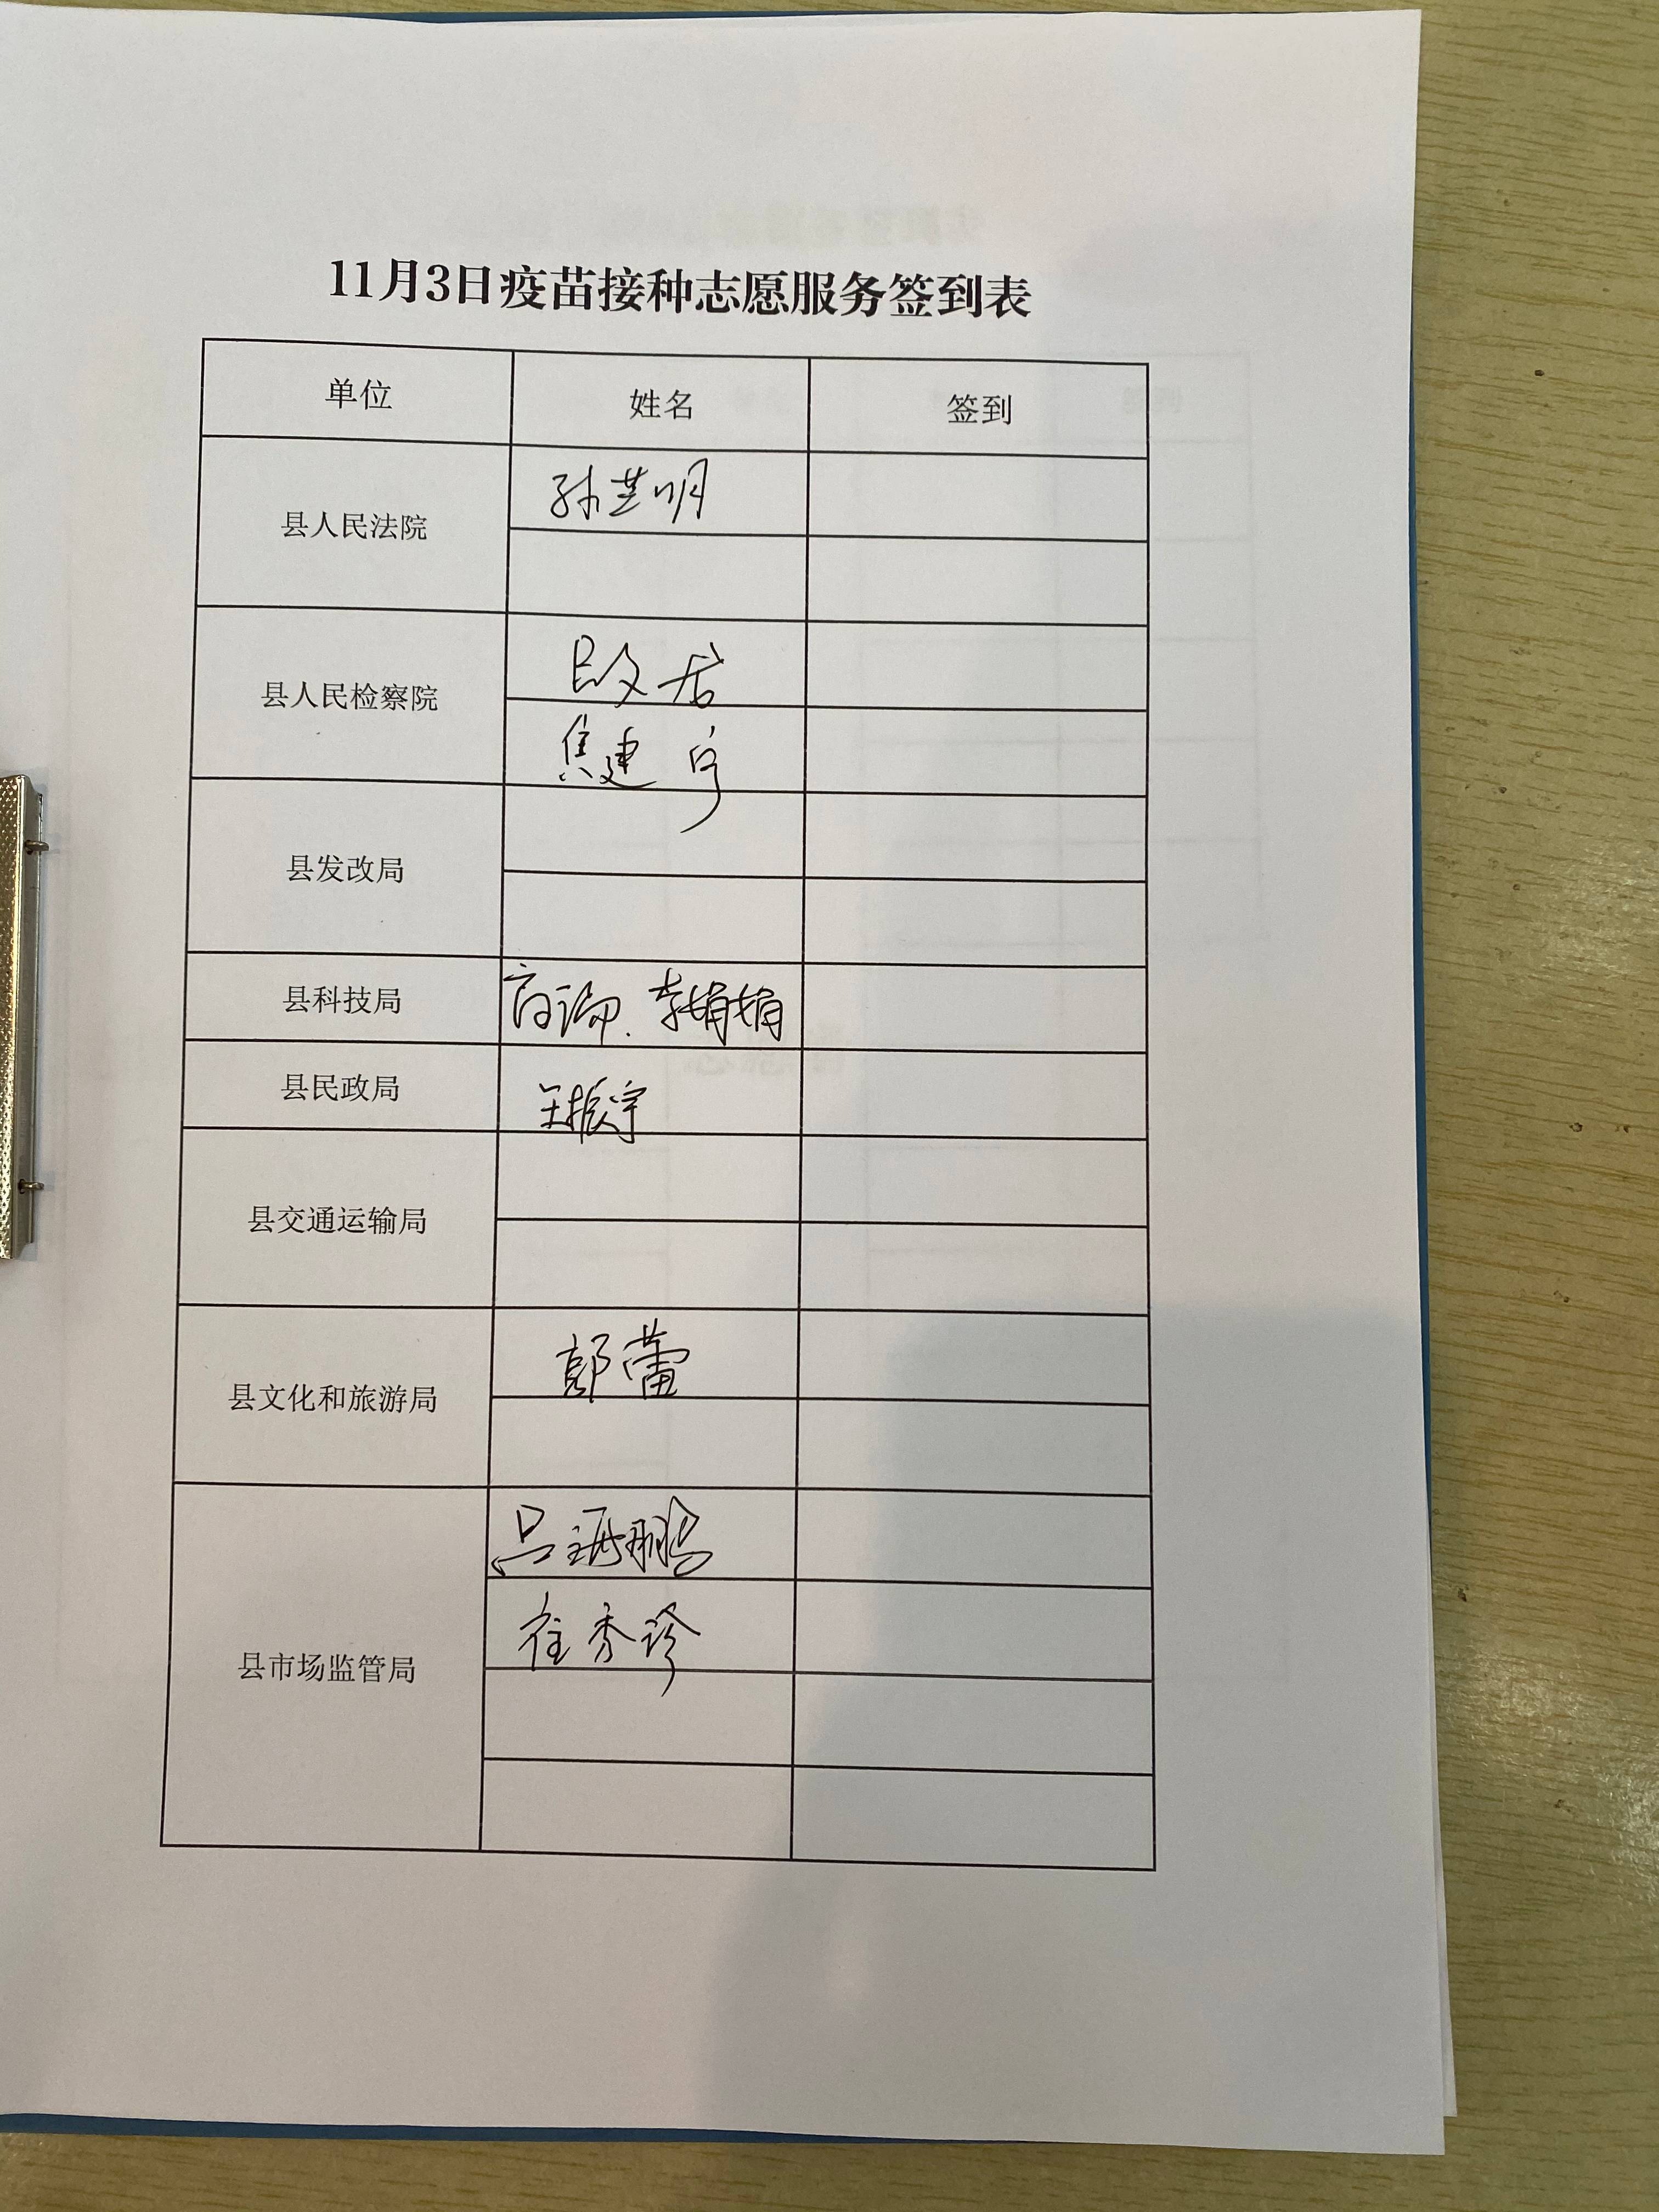 11月3日疫苗接种志愿服务签到表
单位 姓名 签到
县人民法院 孙芝明
县人民检察院
焦建
县发改局
县科技局 李娟娟
县民政局 王振宇
县交通运输局
县文化和旅游局 郭蕾
吕 鹏
县市场监管局 崔秀珍